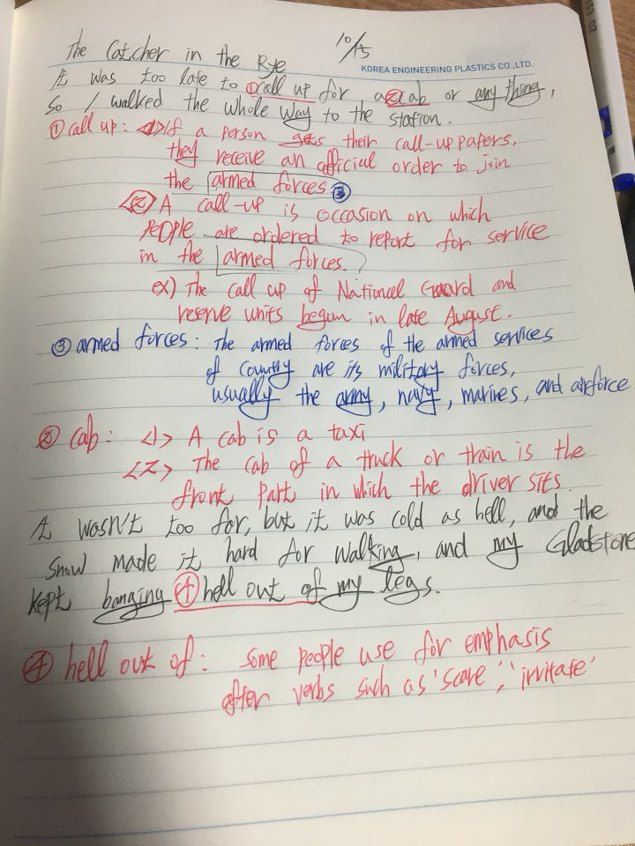 The Catcher in the Rye
10/15
KOREA ENGINEERING PLASTICS CO.,LTD.
It was too late to ①call up for a ②cab or anything,
So I walked the whole way to the station.
① call up : <1> If a person gets their call-up papers,
they receive an official order to join
the armed forces. ③
<2> A call-up is occasion on which
people are ordered to report for service
in the armed forces.
ex) The call up of National Guard and
reserve units begun in late August.
③ armed forces : the armed forces of the armed services
of country are its military forces,
usually the army, navy, marines, and airforce
② Cab : <1> A cab is a taxi
<2> The cab of a truck or train is the
front part in which the driver sits
It wasn't too far, but it was cold as hell, and the
snow made it hard for walking, and my Gladstone
kept banging ④hell out of my legs.
④ hell out of : some people use for emphasis
after verbs such as 'scare', 'irritate'